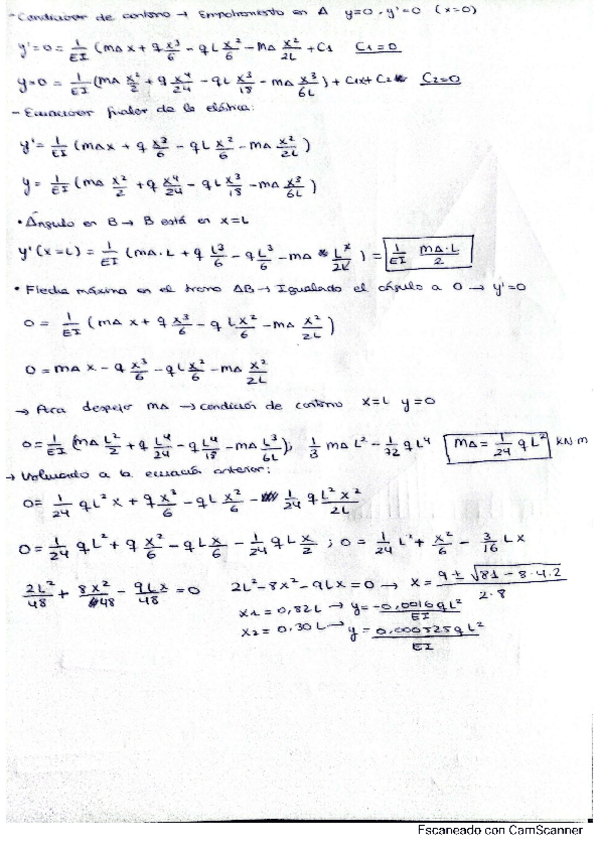 - Condiciones de contorno → Empotramiento en A y=0, y'=0 (x=0)
y'=0 = 1/EI (MA x + q x³/6 - qL x²/6 - MA x²/2L + C1 C1=0
y=0 = 1/EI (MA x²/2 + q x⁴/24 - qL x³/18 - MA x³/6L) + C1x + C2 C2=0
- Ecuaciones finales de la elástica:
y' = 1/EI (MA x + q x³/6 - qL x²/6 - MA x²/2L)
y = 1/EI (MA x²/2 + q x⁴/24 - qL x³/18 - MA x³/6L)
• Ángulo en B → B está en x=L
y'(x=L) = 1/EI (MA·L + q L³/6 - q L³/6 - MA L²/2L) = 1/EI MA·L/2
• Flecha máxima en el tramo AB → Igualado el ángulo a 0 → y'=0
0 = 1/EI (MA x + q x³/6 - qL x²/6 - MA x²/2L)
0 = MA x - q x³/6 - qL x²/6 - MA x²/2L
→ Para despejo MA → condición de contorno x=L y=0
0 = 1/EI (MA L²/2 + q L⁴/24 - q L⁴/18 - MA L³/6L); 1/3 MA L² - 1/72 qL⁴ MA = 1/24 qL² kN m
→ Volviendo a la ecuación anterior:
0 = 1/24 qL² x + q x³/6 - qL x²/6 - 1/24 q L² x²/2L
0 = 1/24 qL² + q x²/6 - qL x/6 - 1/24 qL x/2 ; 0 = 1/24 L² + x²/6 - 3/16 Lx
2L²/48 + 8x²/48 - 9Lx/48 = 0 2L² - 8x² - 9Lx = 0 → x = 9 ± √81 - 8·4·2 / 2·8
x1 = 0,82L → y = -0,0016qL²/EI
x2 = 0,30L → y = 0,000525qL²/EI
Escaneado con CamScanner